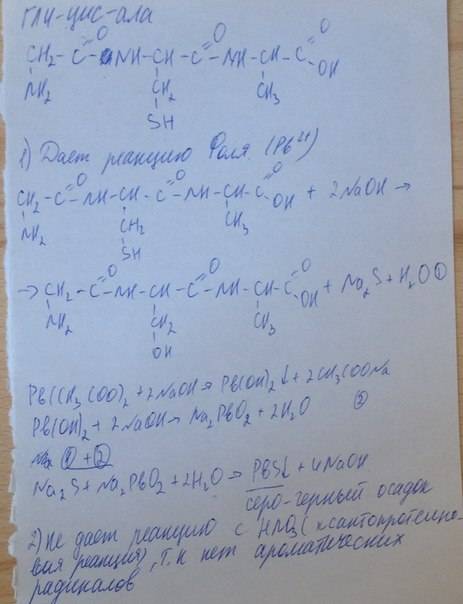 гли-цис-ала
CH₂ - C - NH - CH - C - NH - CH - C
O O O OH
NH₂ CH₂ CH₃
SH
1) Дает реакцию Фоля (Pb²⁺)
CH₂ - C - NH - CH - C - NH - CH - C + 2NaOH →
O O O OH
NH₂ CH₂ CH₃
SH
→ CH₂ - C - NH - CH - C - NH - CH - C + Na₂S + H₂O ①
O O O OH
NH₂ CH₂ CH₃
OH
Pb(CH₃COO)₂ + 2NaOH → Pb(OH)₂↓ + 2CH₃COONa
Pb(OH)₂ + 2NaOH → Na₂PbO₂ + 2H₂O ②
① + ②
Na₂S + Na₂PbO₂ + 2H₂O → PbS↓ + 4NaOH
серо-черный осадок
2) не дает реакцию с HNO₃ (ксантопротеино-
вая реакция), т.к нет ароматических
радикалов